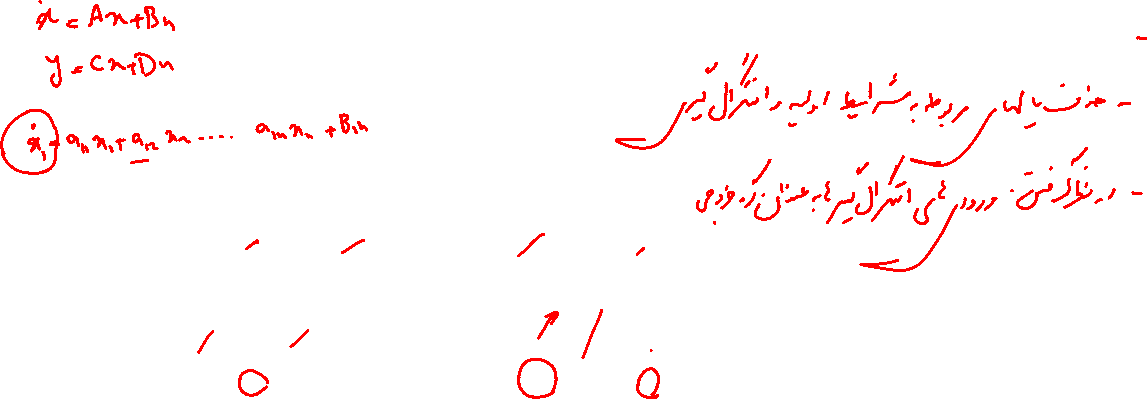 ẋ = Ax+Bu
y = Cx+Du
ẋ₁ = a₁₁x₁ + a₁₂ x₂ ..... a₁ₙ xₙ + B₁u
- حذف یالهای مربوط به شرایط اولیه و انتگرال گیر
- در نظر گرفتن ورودی های انتگرال گیرها به عنوان گره خروجی